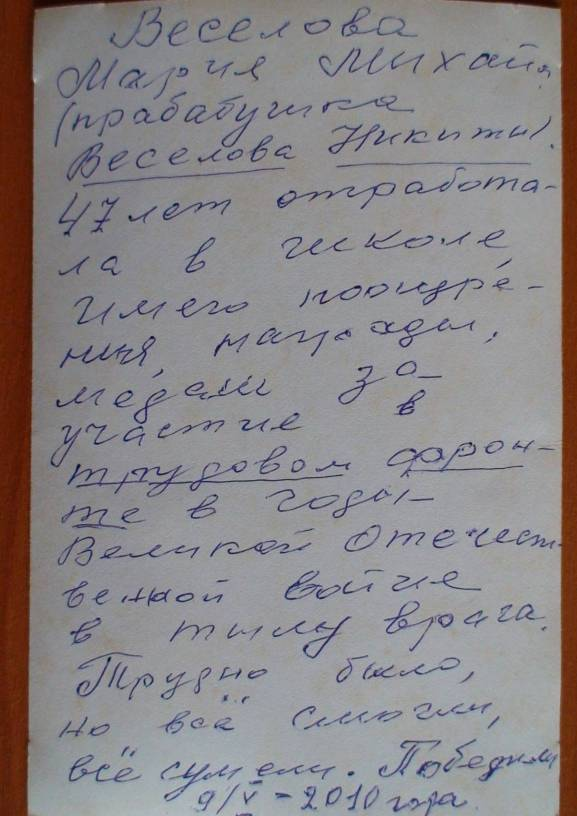 Веселова
Мария Михайл.
(прабабушка
Веселова Никиты).
47 лет отработа-
ла в школе,
имею поощре-
ния, награды,
медали за
участие в
трудовом фрон-
те в годы
Великой Отечест-
веной войне
в тылу врага.
Трудно было,
но всё смогли,
всё сумели. Победили
9/V - 2010 года.